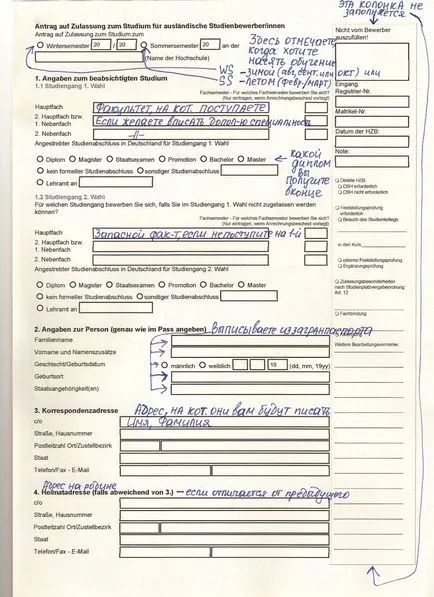 ЭТА КОЛОНКА НЕ
ЗАПОЛНЯЕТСЯ
Antrag auf Zulassung zum Studium für ausländische Studienbewerber/innen
Antrag auf Zulassung zum Studium zum
Wintersemester 20 / 20 Sommersemester 20 an der
(Name der Hochschule)
Здесь отмечаете
когда хотите
начать обучение
WS - зимой (авг, сент. или окт) или
SS - летом (февр/март)
Nicht vom Bewerber
auszufüllen!
Eingang
Registrier-Nr.
Matrikel-Nr.
Datum der HZB:
Note:
1. Angaben zum beabsichtigten Studium
1.1 Studiengang 1. Wahl
Fachsemester - Für welches Fachsemester bewerben Sie sich?
(Nur eintragen, wenn Anrechnungsbescheid vorliegt)
Hauptfach Факультет, на кот. поступаете
2. Hauptfach bzw.
1. Nebenfach Если желаете вписать допол-ю специальность
2. Nebenfach -//-
Angestrebter Studienabschluss in Deutschland für Studiengang 1. Wahl
Diplom Magister Staatsexamen Promotion Bachelor Master
kein formeller Studienabschluss sonstiger Studienabschluss
Lehramt an
какой
диплом
вы
получите
вконце
Direkte HZB
DSH erforderlich
DSH nicht erforderlich
Feststellungsprüfung
erforderlich
Besuch des Studienkollegs
In den Kurs
externe Feststellungsprüfung
Ergänzungsprüfung
Zulassungsbescheid
nach Studienplatzvergabeordnung
Art. 12
Fachbindung
Weitere Bearbeitungsvermerke:
1.2 Studiengang 2. Wahl
Für welchen Studiengang bewerben Sie sich, falls Sie im Studiengang 1. Wahl nicht zugelassen werden
können?
Fachsemester - Für welches Fachsemester bewerben Sie sich?
(Nur eintragen, wenn Anrechnungsbescheid vorliegt)
Hauptfach Запасной фак-т, если не поступите на 1-й
2. Hauptfach bzw.
1. Nebenfach
2. Nebenfach
Angestrebter Studienabschluss in Deutschland für Studiengang 2. Wahl
Diplom Magister Staatsexamen Promotion Bachelor Master
kein formeller Studienabschluss sonstiger Studienabschluss
Lehramt an
2. Angaben zur Person (genau wie im Pass angeben) Выписываете из загранпаспорта
Familienname
Vorname und Namenszusätze
Geschlecht/Geburtsdatum männlich weiblich 19 (dd, mm, 19yy)
Geburtsort
Staatsangehörigkeit(en)
3. Korrespondenzadresse Адрес, на кот. они вам будут писать
c/o Имя, Фамилия
Straße, Hausnummer
Postleitzahl Ort/Zustellbezirk
Staat
Telefon/Fax - E-Mail
Адрес на родине
4. Heimatadresse (falls abweichend von 3.) — если отличается от предыдущего
c/o
Straße, Hausnummer
Postleitzahl Ort/Zustellbezirk
Staat
Telefon/Fax - E-Mail